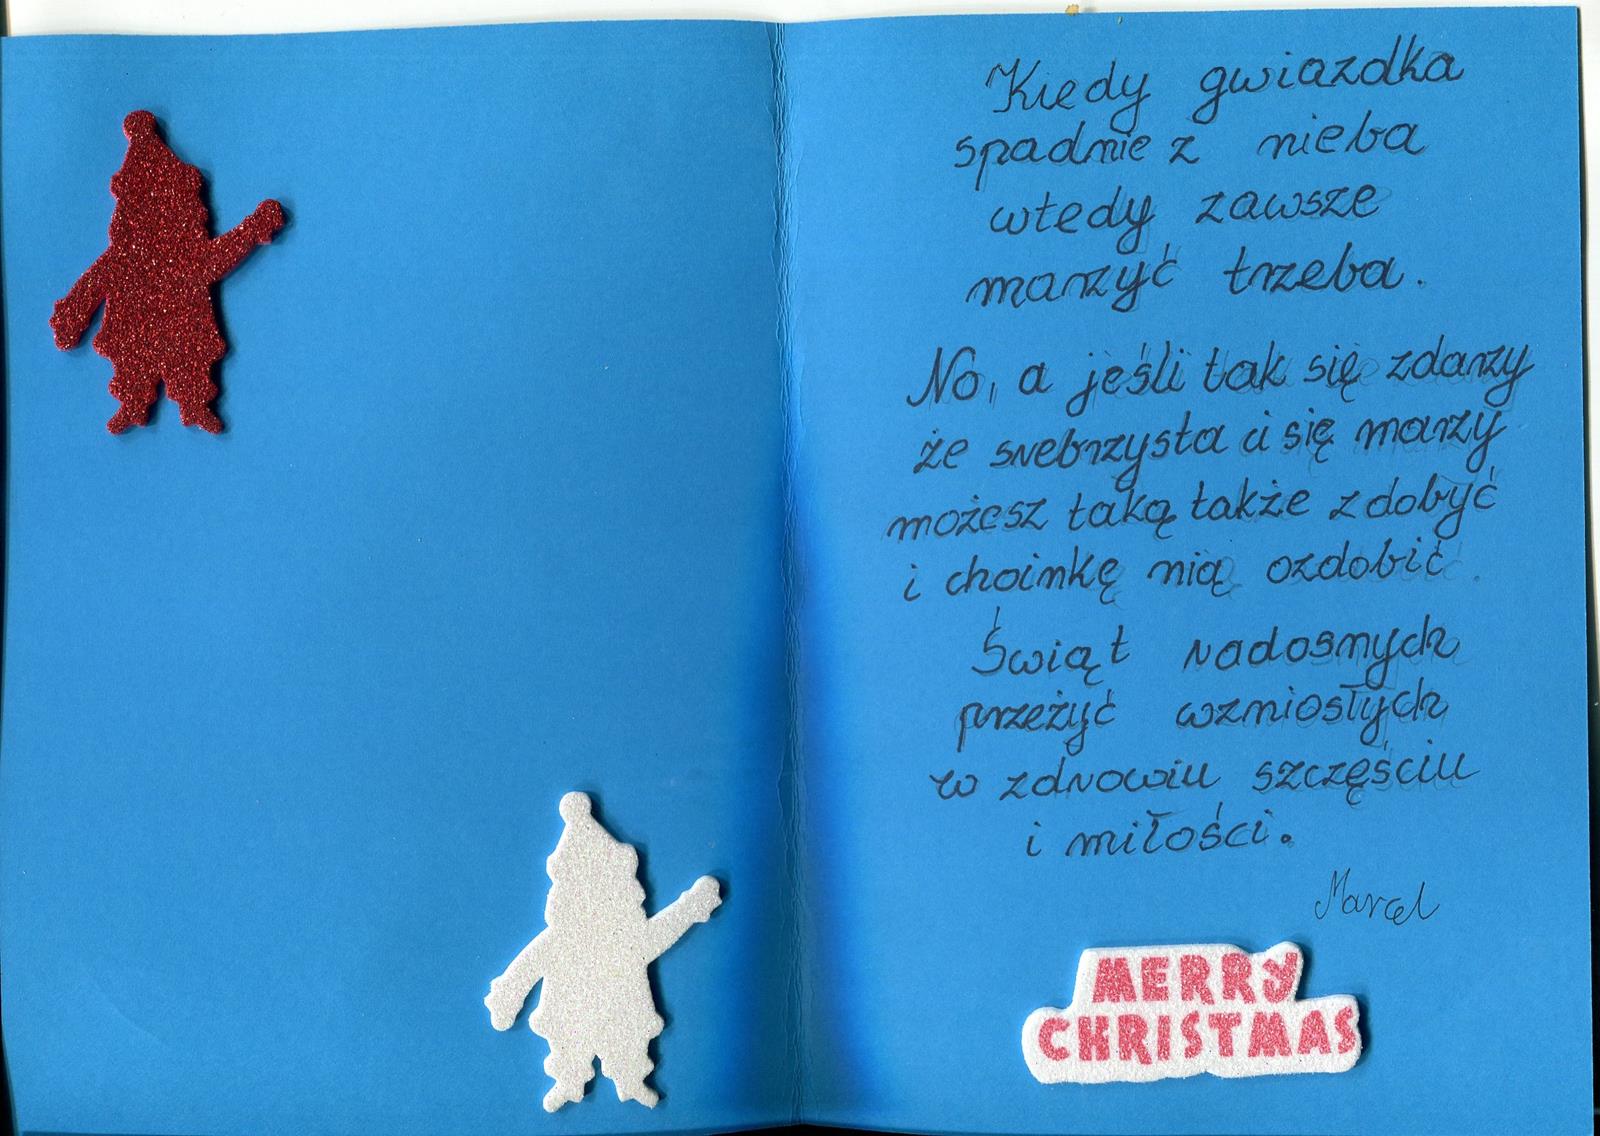 Kiedy gwiazdka
spadnie z nieba
wtedy zawsze
marzyć trzeba.
No, a jeśli tak się zdarzy
że srebrzysta ci się marzy
możesz taką także zdobyć
i choinkę nią ozdobić.
Świąt radosnych
przeżyć wzniosłych
w zdrowiu szczęściu
i miłości.
Marcel
MERRY
CHRISTMAS